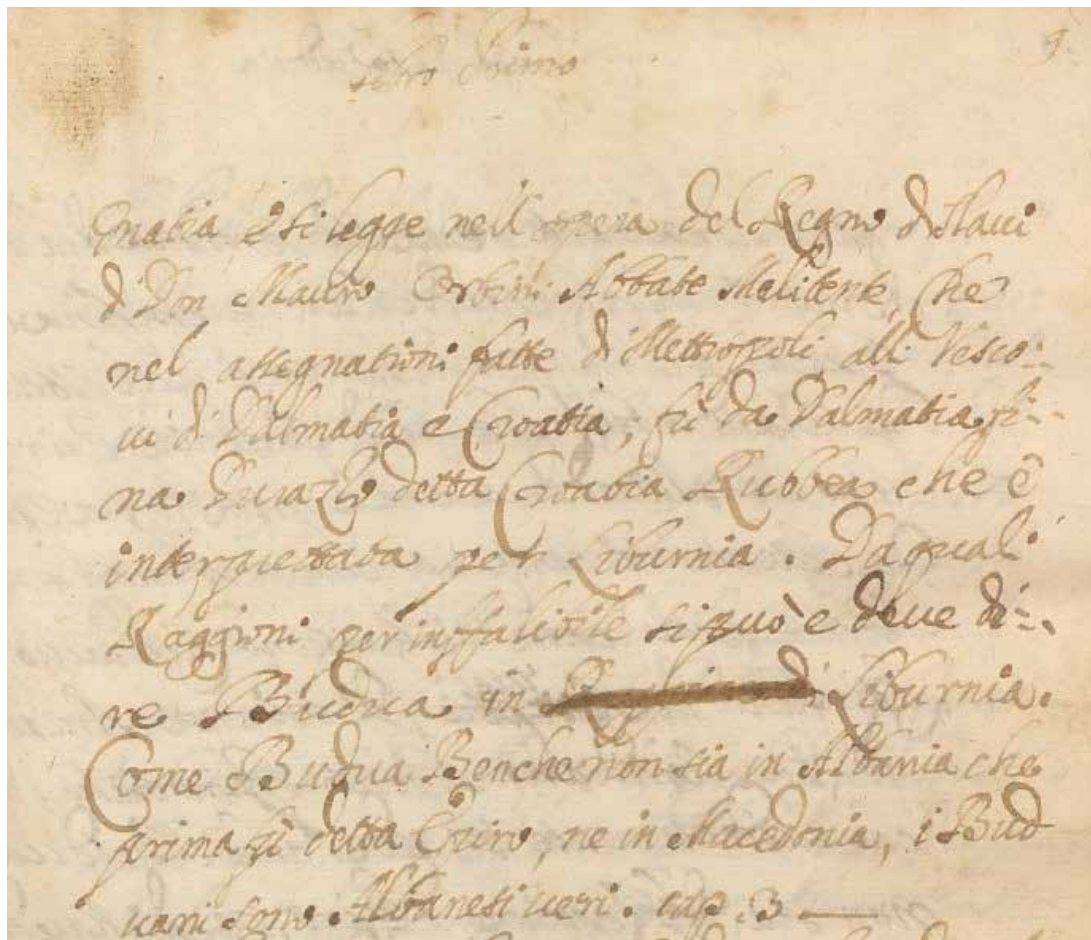 libro Primo
9
Enatia, e si legge nell opera del Regno d Slavi
d Don Mauro Orbini Abbate Melitense, che
nel assegnationi fatte di Mettropoli alli Vesco-
ui di Dalmatia e Croatia, fù da Dalmatia fi-
na Durazzo detta Croatia Rubbea che è
interpretata per Liburnia. Da quali
Raggioni per inffalibile si può e deue di-
re Budua in Liburnia.
Come Budua Benche non sia in Albania che
prima fù detta Epiro, ne in Macedonia, i Bud
uani sono Albanesi ueri. cap. 3